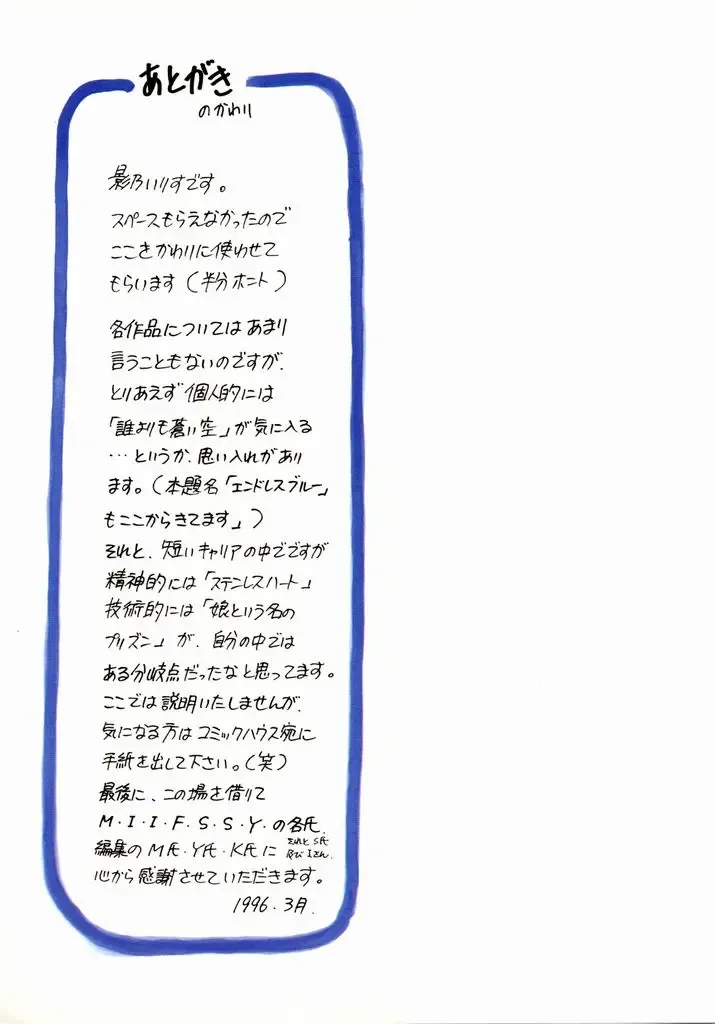 あとがき
のかわり
影乃いりすです。
スペースもらえなかったので
ここをかわりに使わせて
もらいます(半分ホント)
各作品についてはあまり
言うこともないのですが、
とりあえず個人的には
「誰よりも蒼い空」が気に入る
…というか、思い入れがあり
ます。(本題名「エンドレスブルー」
もここからきてます」)
それと、短いキャリアの中でですが
精神的には「ステンレスハート」
技術的には「娘という名の
プリズン」が、自分の中では
ある分岐点だったなと思ってます。
ここでは説明いたしませんが、
気になる方はコミックハウス宛に
手紙を出して下さい。(笑)
最後に、この場を借りて
M・I・I・F・S・S・Y・の各氏、
編集のM氏・Y氏・K氏に
それとS氏
及びIさん、
心から感謝させていただきます。
1996.3月.